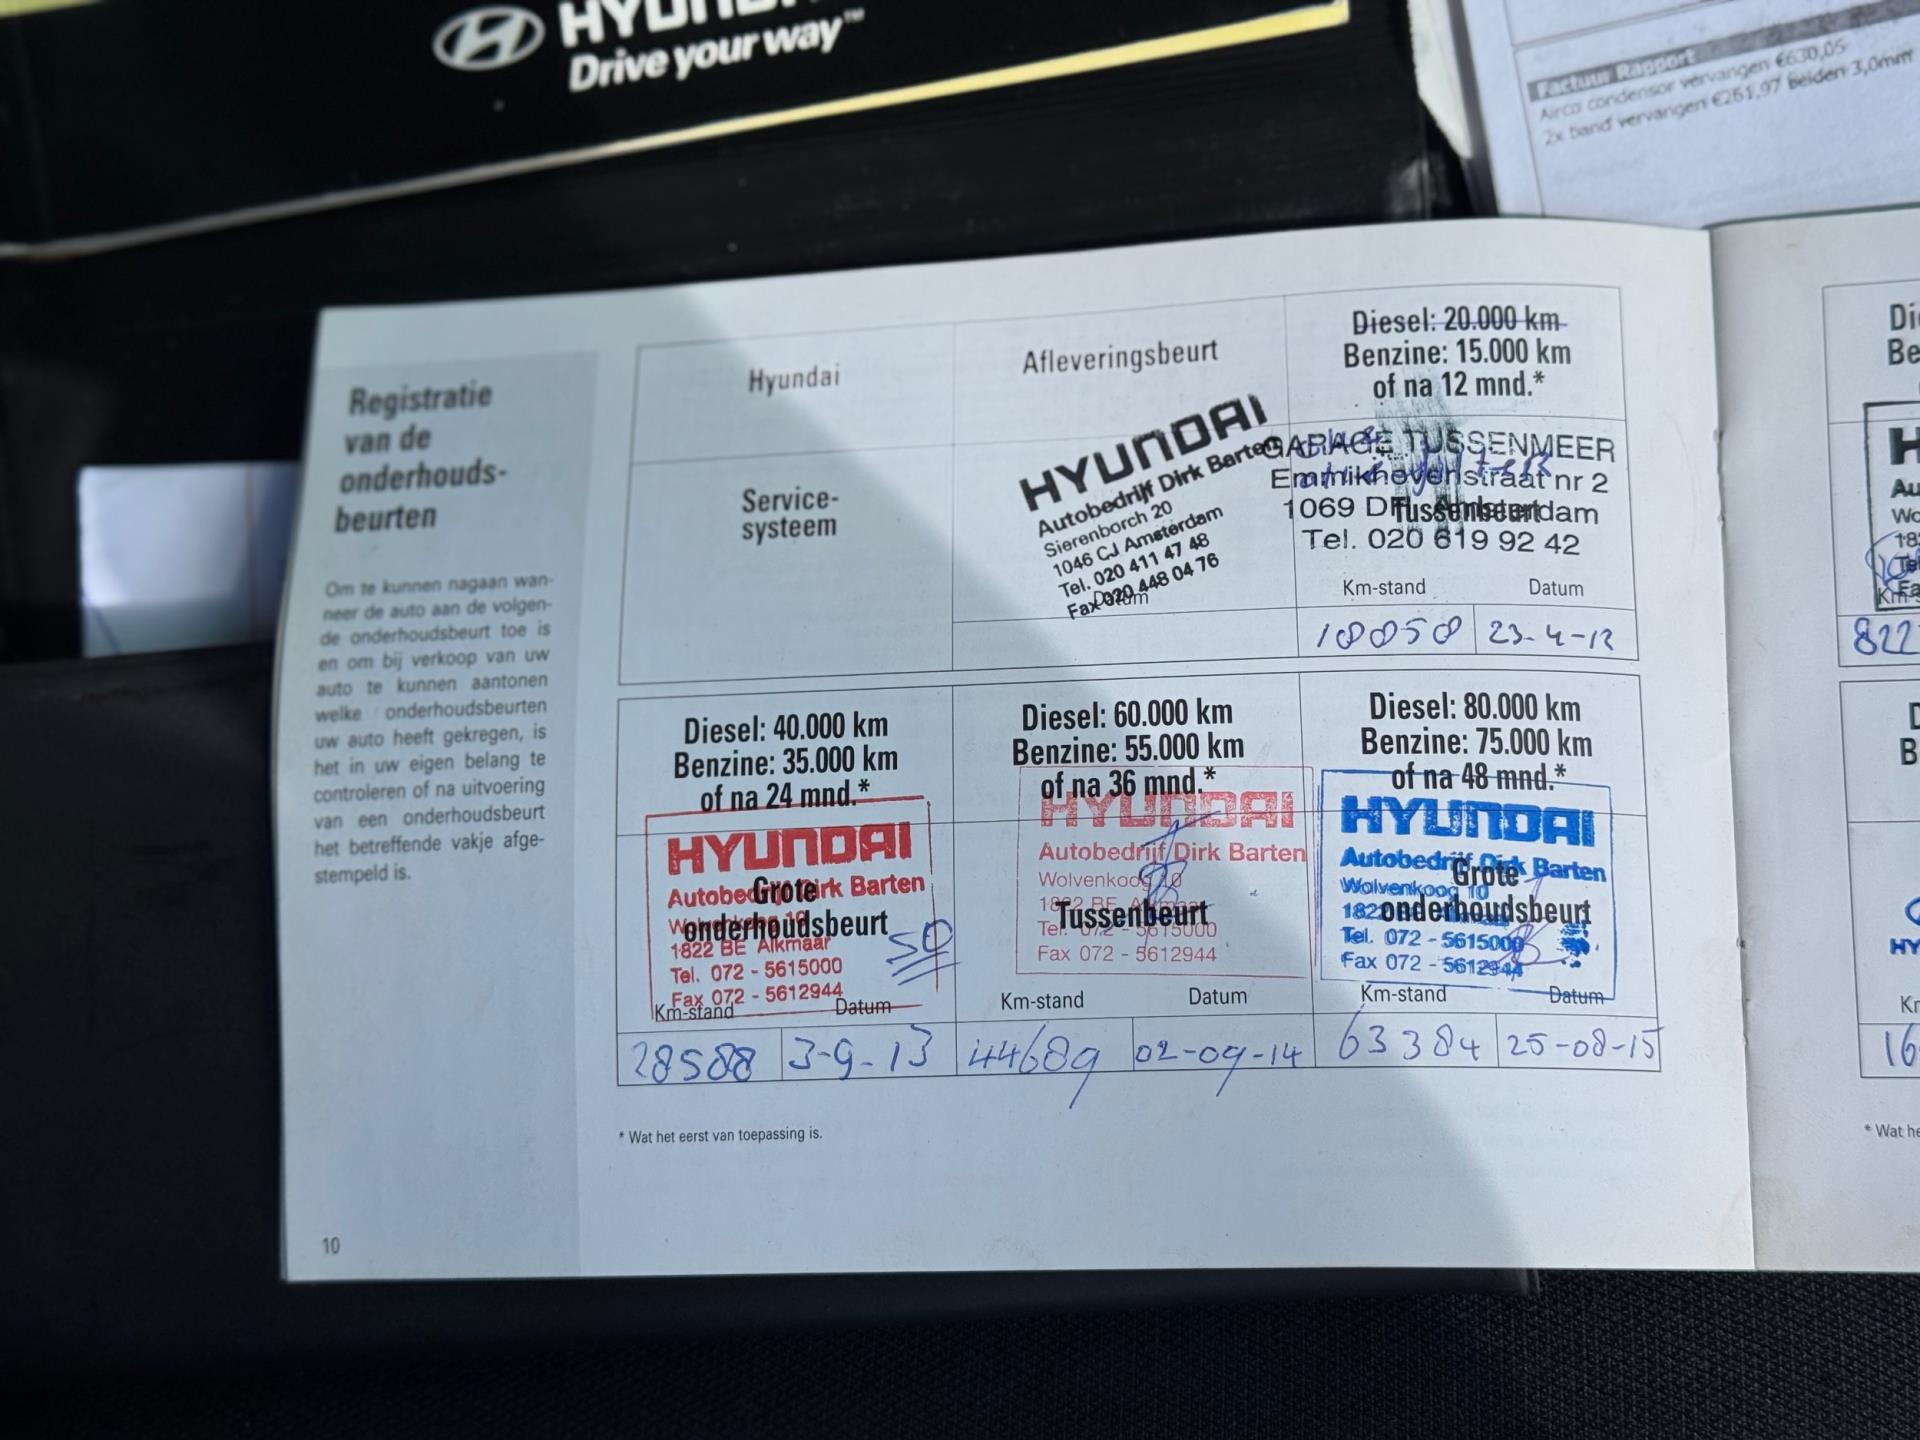 HYUNDAI
Drive your way™
Factuur Rapport
Airco condensor vervangen €630,05
2x band vervangen €261,97 Beiden 3,0mm
Registratie
van de
onderhouds-
beurten
Om te kunnen nagaan wan-
neer de auto aan de volgen-
de onderhoudsbeurt toe is
en om bij verkoop van uw
auto te kunnen aantonen
welke onderhoudsbeurten
uw auto heeft gekregen, is
het in uw eigen belang te
controleren of na uitvoering
van een onderhoudsbeurt
het betreffende vakje afge-
stempeld is.
10
Hyundai
Service-
systeem
Afleveringsbeurt
HYUNDAI
Autobedrijf Dirk Barten
Sierenborch 20
1046 CJ Amsterdam
Tel. 020 411 47 48
Fax 020 448 04 76
Datum
Diesel: 20.000 km
Benzine: 15.000 km
of na 12 mnd.*
GARAGE TUSSENMEER
Emmikhovenstraat nr 2
1069 Amsterdam
Tussenbeurt
Tel. 020 619 92 42
Km-stand Datum
18058 23-4-12
Diesel: 40.000 km
Benzine: 35.000 km
of na 24 mnd.*
HYUNDAI
Autobedrijf Dirk Barten
Grote
Wolvenkoog 10
onderhoudsbeurt
1822 BE Alkmaar
Tel. 072 - 5615000
Fax 072 - 5612944
Km-stand Datum
28588 3-9-13
Diesel: 60.000 km
Benzine: 55.000 km
of na 36 mnd.*
HYUNDAI
Autobedrijf Dirk Barten
Wolvenkoog 10
1822 BE Alkmaar
Tussenbeurt
Tel. 072 - 5615000
Fax 072 - 5612944
Km-stand Datum
44689 02-09-14
Diesel: 80.000 km
Benzine: 75.000 km
of na 48 mnd.*
HYUNDAI
Autobedrijf Dirk Barten
Grote
Wolvenkoog 10
1822 BE
onderhoudsbeurt
Tel. 072 - 5615000
Fax 072 - 5612944
Km-stand Datum
63384 25-08-15
* Wat het eerst van toepassing is.
822
16
* Wat he